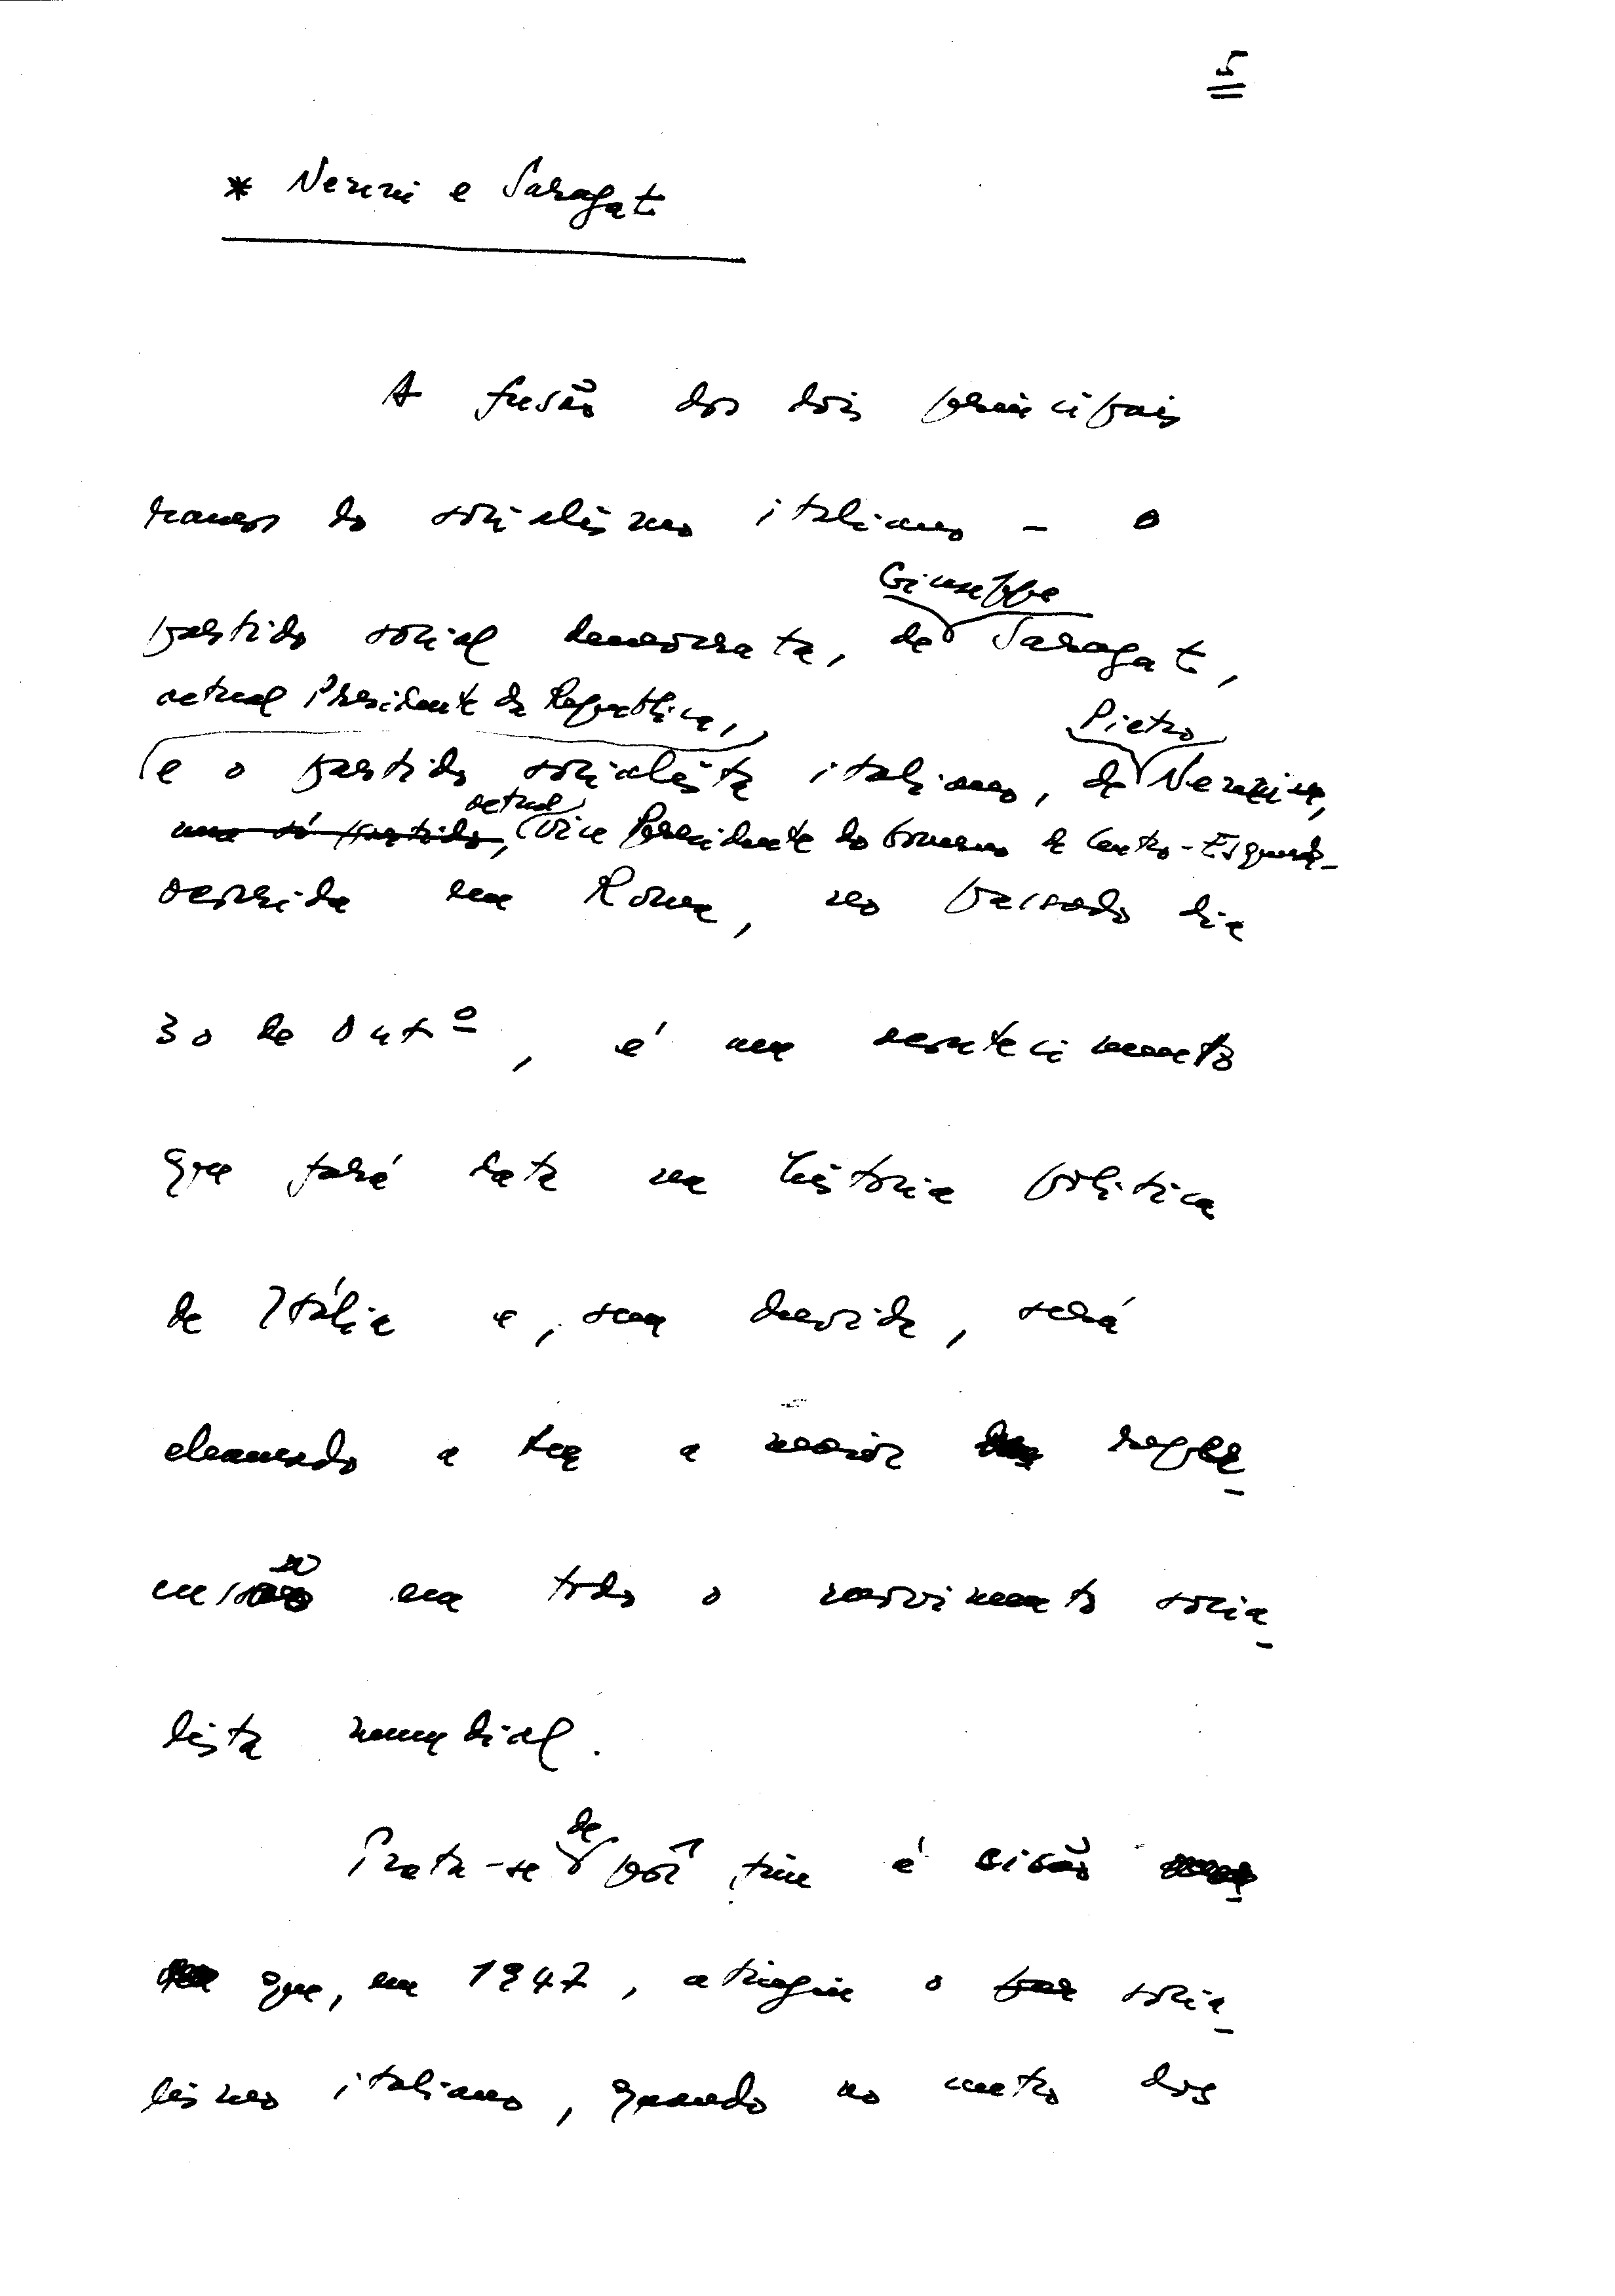 5
* Nenni e Saragat
A fusão dos dois principais
ramos do socialismo italiano - o
Giuseppe
partido social democrata, de Saragat,
actual Presidente da Republica,
e o partido socialista italiano, de Nenni,
Pietro
actual
um só partido, Vice Presidente do Governo de Centro-Esquerda
ocorrida em Roma, no passado dia
30 de Outº, é um acontecimento
que fará data na história politica
de Itália e, sem duvida, será
chamado a ter a maior reper-
cussão em todo o movimento socia-
lista mundial.
Trata-se de pôr fim é cisão
que, em 1947, atingiu o socia-
lismo italiano, quando no centro dos